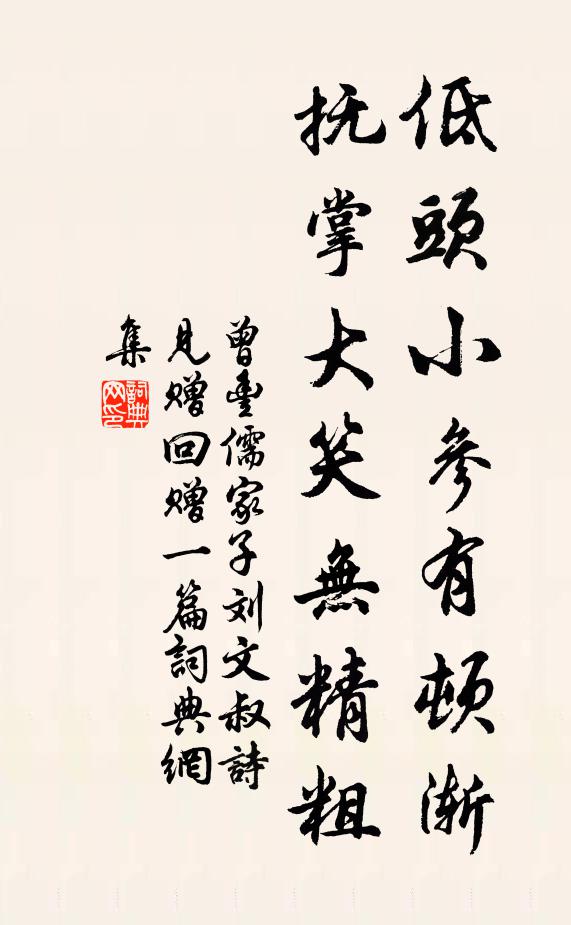 低頭小參有頓漸
抚掌大笑無精粗
曾豊儒家子刘文叔詩
見贈回贈一篇詞典網
集
詞典
网印